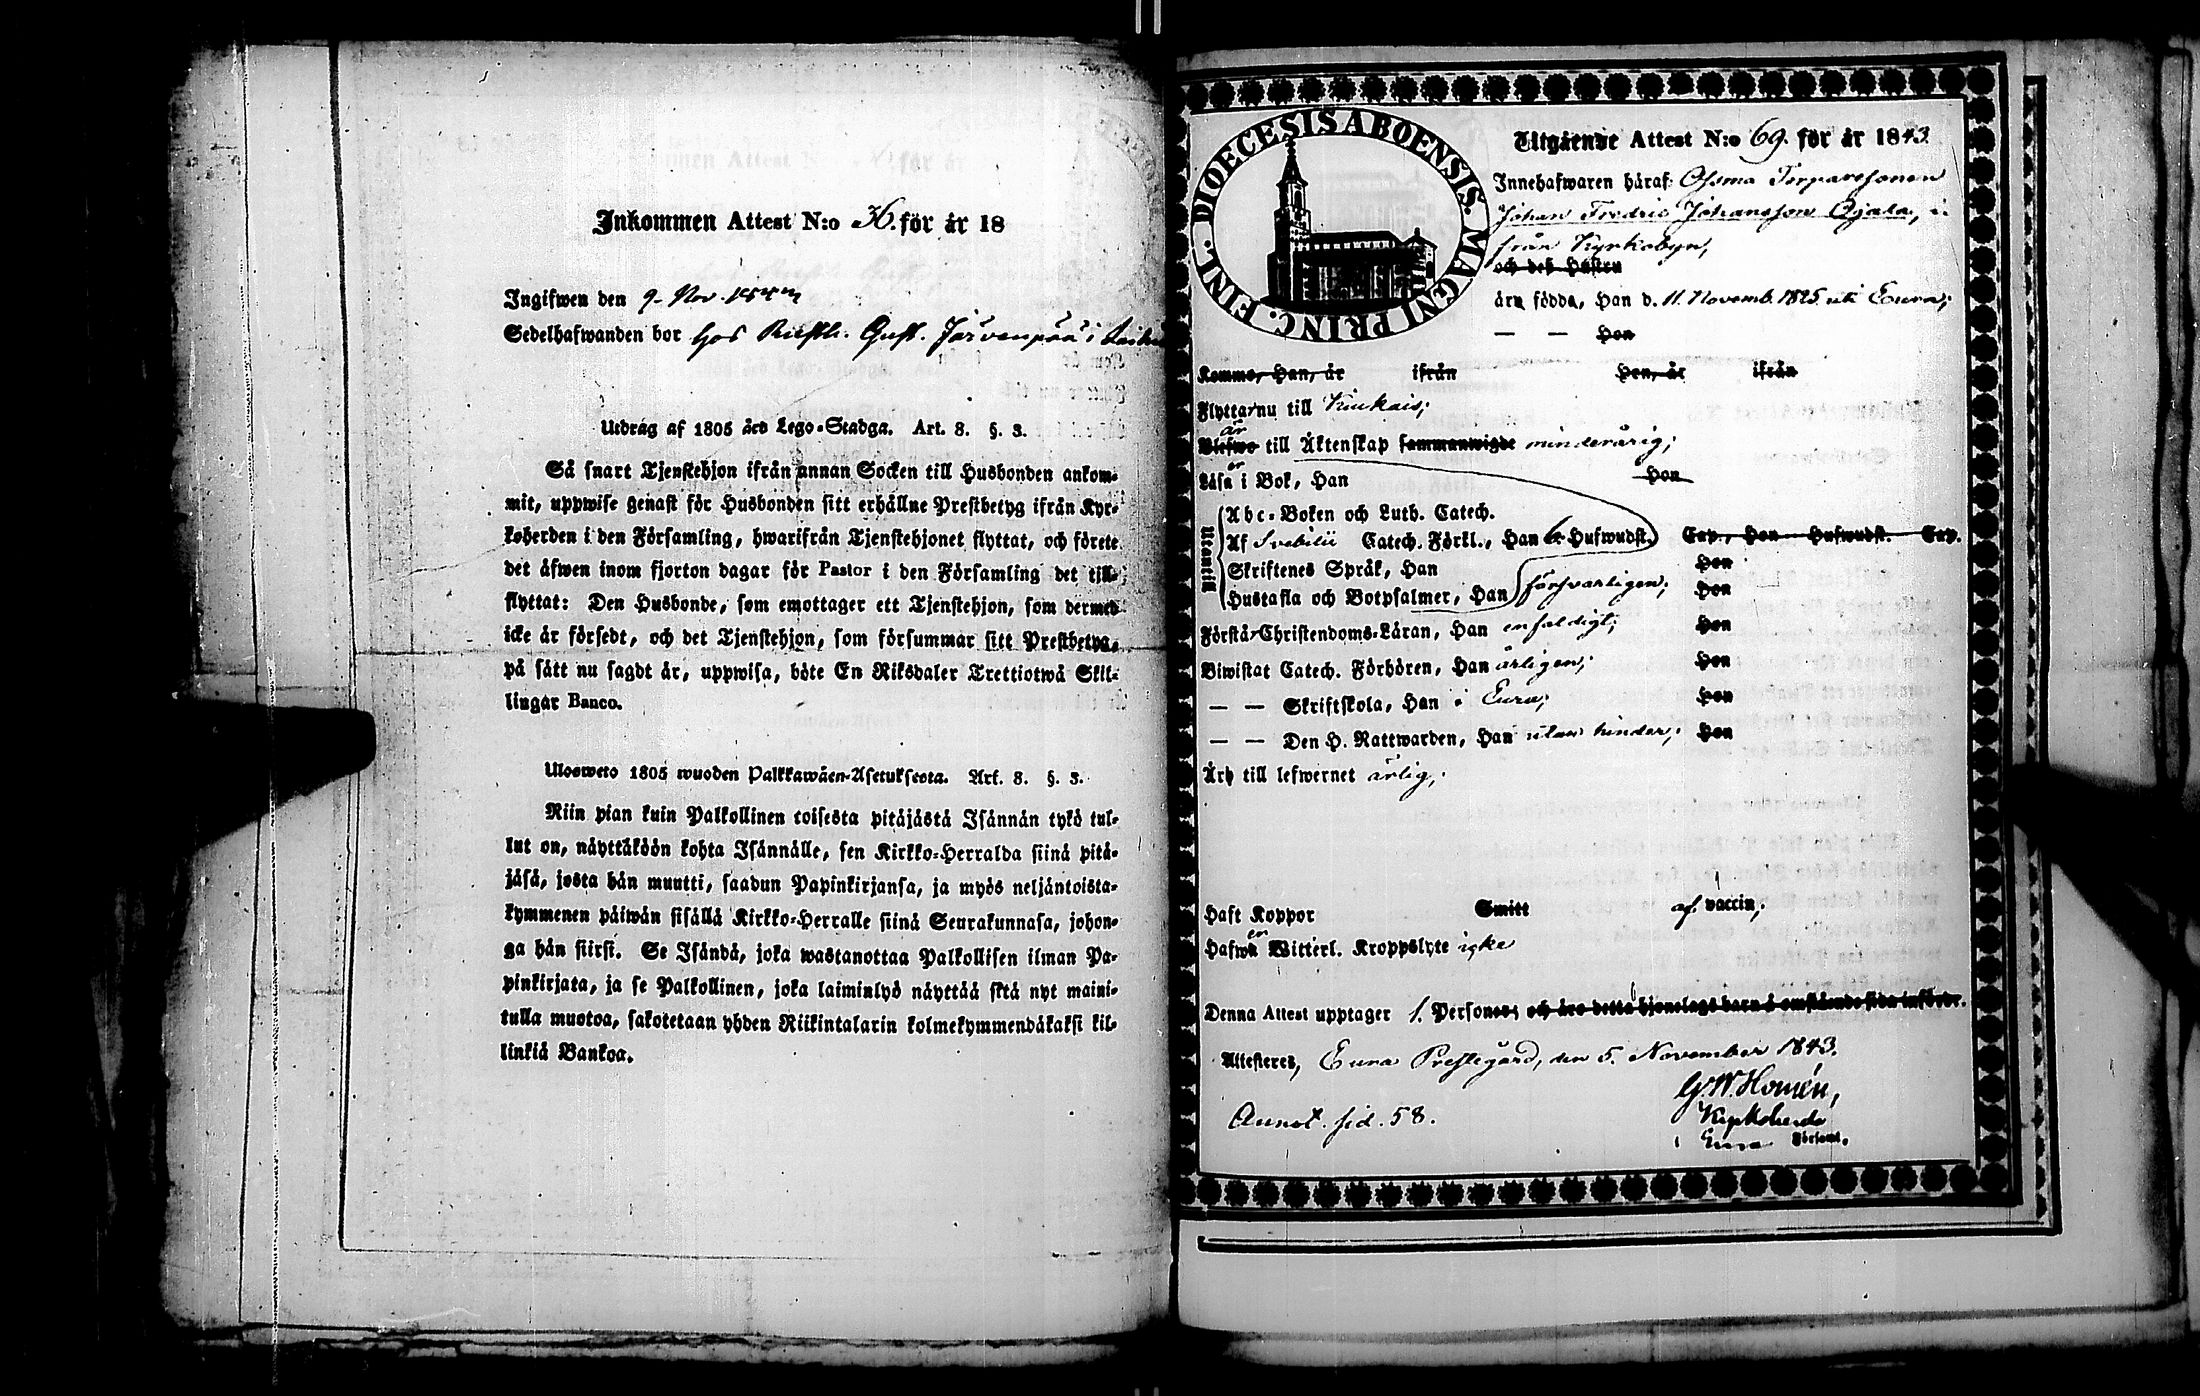 Inkommen Attest N:o 36. för år 18
Ingifwen den 9 Nov. 1843
Sedelhafwanden bor hos Rusth. Gust. Järvenpää i
Utdrag af 1805 års Lego-Stadga. Art. 8. §. 3.
Så snart Tjenstehjon ifrån annan Socken till Husbonden ankom-
mit, uppwise genast för Husbonden sitt erhållne Prestbetyg ifrån Kyr-
koherden i den Församling, hwarifrån Tjenstehjonet flyttat, och förete
det äfwen inom fjorton dagar för Pastor i den Församling det till-
flyttat: Den Husbonde, som emottager ett Tjenstehjon, som dermed
icke är försedt, och det Tjenstehjon, som försummar sitt Prestbetyg,
på sätt nu sagdt är, uppwisa, böte En Riksdaler Trettiotwå Skil-
lingar Banco.
Ulosweto 1805 wuoden Palkkawäen-Asetuksesta. Art. 8. §. 3.
Niin pian kuin Palkollinen toisesta pitäjästä Isännän tykö tul-
lut on, näyttäköön kohta Isännälle, sen Kirkko-Herralda siinä pitä-
jäsä, josta hän muutti, saadun Papinkirjansa, ja myös neljäntoista-
kymmenen päiwän sisällä Kirkko-Herralle siinä Seurakunnasa, johon-
ga hän siirsi. Se Isändä, joka wastanottaa Palkollisen ilman Pa-
pinkirjata, ja se Palkollinen, joka laiminlyö näyttää sitä nyt maini-
tulla muotoa, sakotetaan yhden Riikintalarin kolmekymmendäkaksi kil-
linkiä Bankoa.
DIOECESIS ABOENSIS. MAGNI PRINC. FINL.
Utgående Attest N:o 69. för år 1843.
Innehafwaren häraf Torparesonen
Johan Fredric Johansson Ojala,
från Kyrkobyn,
och deß Hustru
äro födda, Han d. 11. Novemb. 1825 uti Eura;
— — Hon
Komne, Han, år ifrån Hon, år ifrån
Flytta nu till Kiukais;
är
Blefwe till Äktenskap sammanwigde minderårig;
er
Läsa i Bok, Han Hon
Utantill
Abc-Boken och Luth. Catech.
Af Svebilii Catech. Förkl., Han 6 Hufwudst. Cap., Hon Hufwudst. Cap.
Skriftenes Språk, Han Hon
Hustafla och Botpsalmer, Han försvarligen; Hon
Förstå Christendoms-Läran, Han enfaldigt; Hon
Biwistat Catech. Förhören, Han årligen; Hon
— — Skriftskola, Han i Eura; Hon
— — Den H. Nattwarden, Han utan hinder; Hon
Äro till lefwernet ärlig;
Haft Koppor Smitt af vaccin;
er
Hafwa Witterl. Kroppslyte icke
Denna Attest upptager 1. Person och äro detta hjonelags barn å omstående sida införde.
Attesteres, Eura Prestegård, den 5. November 1843.
G. W. Homén,
Kyrkoherde
i Eura Församl.
Annot. sid. 58.